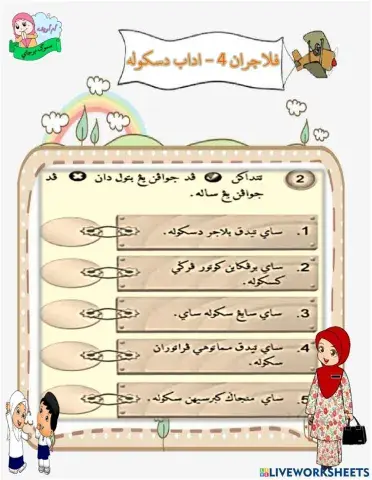 فلاجران 4 - اداب دسكوله
2 تنداكن ✔ قد جواڤن يڠ بتول دان ✖ قد
جواڤن يڠ ساله.
1. ساي تيدق بلاجر دسكوله.
2. ساي برڤكاين كوتور ڤرݢي
كسكوله.
3. ساي سايڠ سكوله ساي.
4. ساي تيدق مماتوهي ڤراتوران
سكوله.
5. ساي منجاݢ كبرسيهن سكوله.
LIVEWORKSHEETS